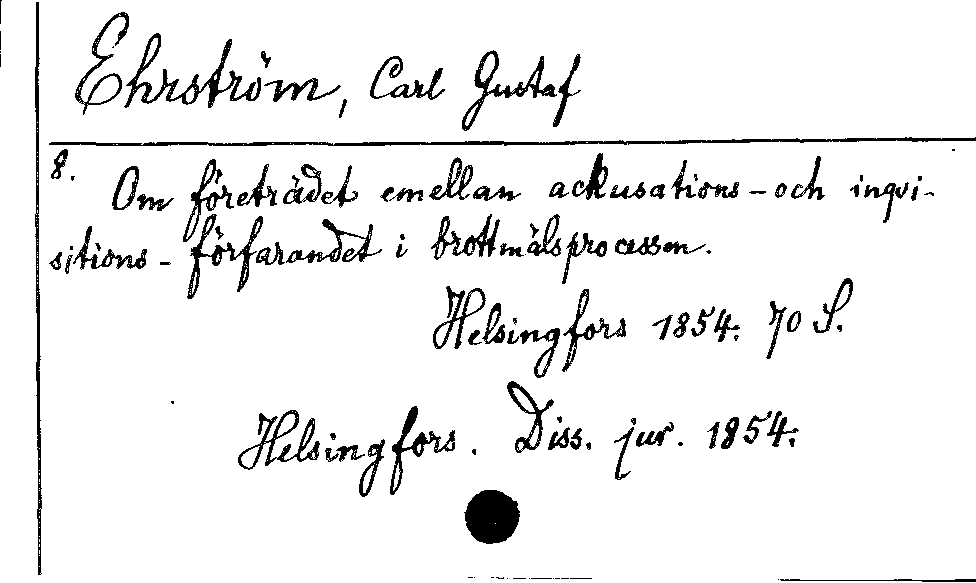 Ehrström, Carl Gustaf
8.
Om företrädet emellan ackusations-och inqvi-
sitions-förfarandet i brottmålsprocessen.
Helsingfors 1854. 70 S.
Helsingfors. Diss. jur. 1854.